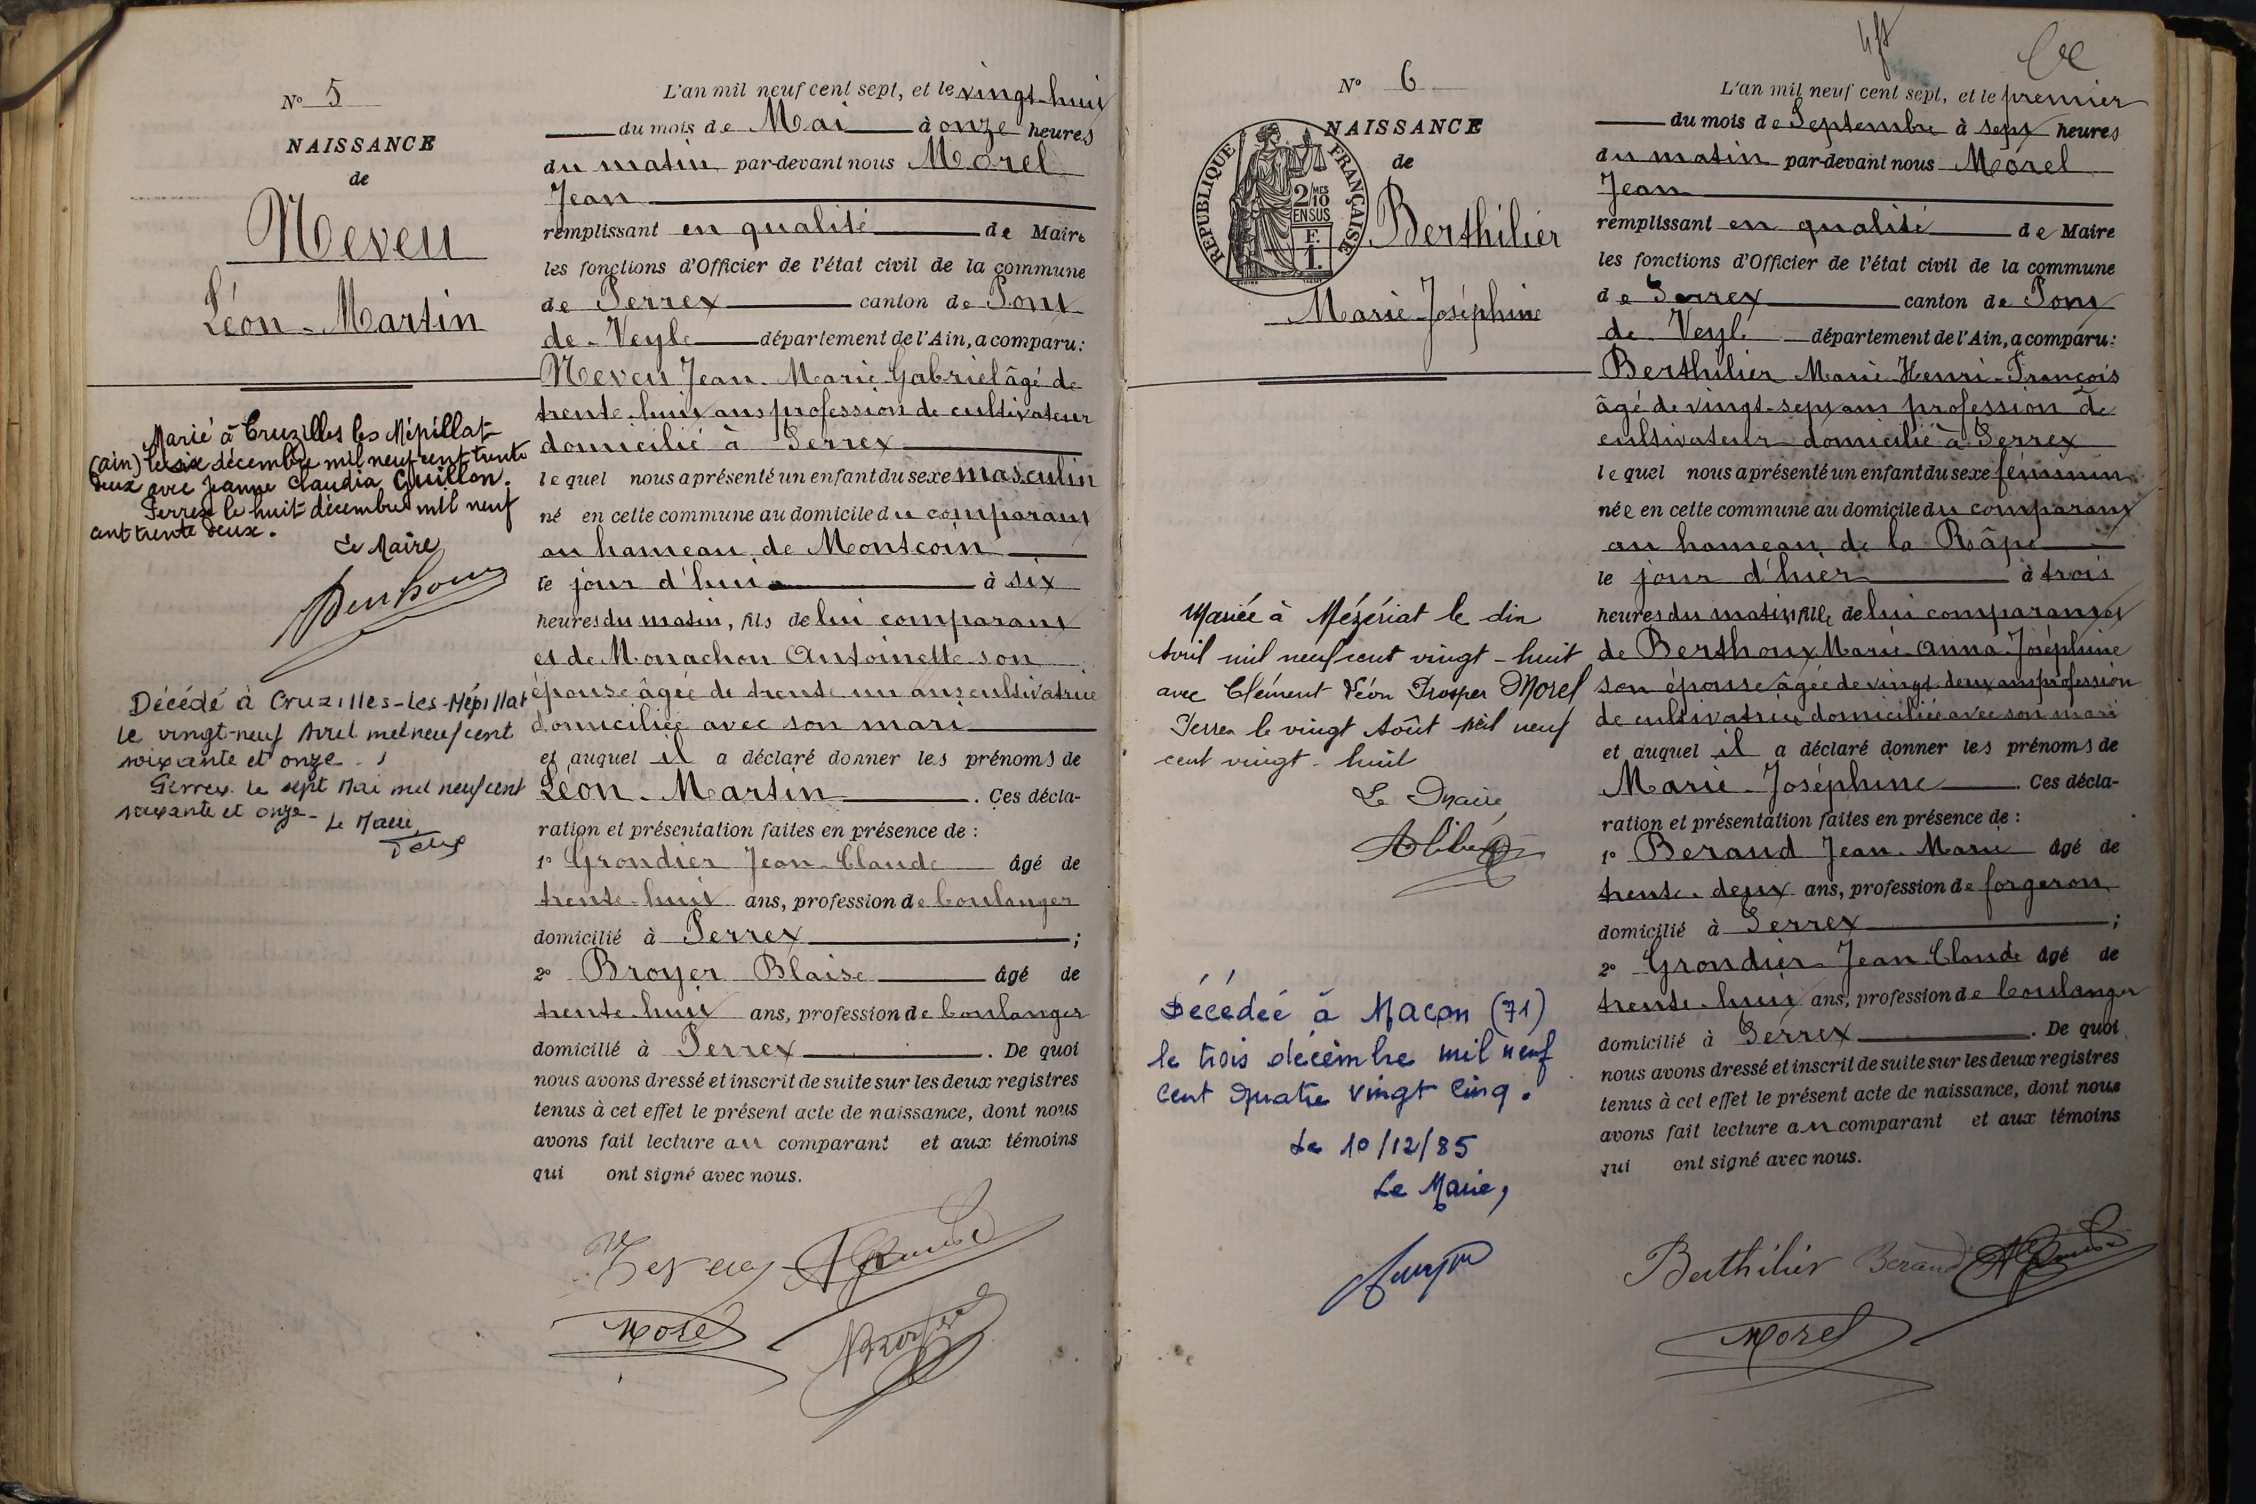 N° 5
NAISSANCE
de
Neveu
Léon-Martin
Marié à Cruzilles les Mépillat
(ain) le six décembre mil neuf cent trente
deux avec Jeanne Claudia Guillon.
Perrex le huit décembre mil neuf
cent trente deux.
Le Maire
Décédé à Cruzilles-Les-Mépillat
le vingt-neuf Avril mil neuf cent
soixante et onze
Perrex le sept Mai mil neuf cent
soixante et onze - Le Maire
L'an mil neuf cent sept, et le vingt-huit
du mois de Mai à onze heures
du matin par-devant nous Morel
Jean
remplissant en qualité de Maire
les fonctions d'Officier de l'état civil de la commune
de Perrex canton de Pont
de-Veyle département de l'Ain, a comparu :
Neveu Jean-Marie-Gabriel âgé de
trente-huit ans profession de cultivateur
domicilié à Perrex
lequel nous a présenté un enfant du sexe masculin
né en cette commune au domicile du comparant
au hameau de Montcoin
le jour d'hui à six
heures du matin, fils de lui comparant
et de Monachon Antoinette son
épouse âgée de trente un ans cultivatrice
domiciliée avec son mari
et auquel il a déclaré donner les prénoms de
Léon-Martin. Ces décla-
ration et présentation faites en présence de :
1° Grondier Jean-Claude âgé de
trente-huit ans, profession de boulanger
domicilié à Perrex ;
2° Broyer Blaise âgé de
trente-huit ans, profession de boulanger
domicilié à Perrex. De quoi
nous avons dressé et inscrit de suite sur les deux registres
tenus à cet effet le présent acte de naissance, dont nous
avons fait lecture au comparant et aux témoins
qui ont signé avec nous.
Neveu
Morel
N° 6
NAISSANCE
de
RÉPUBLIQUE FRANÇAISE
2/10
MES
EN SUS
F.
1.
Berthilier
Marie-Joséphine
Mariée à Mézériat le dix
Avril mil neuf cent vingt-huit
avec Clément Léon Prosper Morel
Perrex le vingt Août mil neuf
cent vingt-huit
Le Maire,
Décédée à Macon (71)
le trois décembre mil neuf
cent quatre vingt cinq.
Le 10/12/85
Le Maire,
L'an mil neuf cent sept, et le premier
du mois de Septembre à sept heures
du matin par-devant nous Morel
Jean
remplissant en qualité de Maire
les fonctions d'Officier de l'état civil de la commune
de Perrex canton de Pont
de Veyle département de l'Ain, a comparu :
Berthilier Marie-Henri-François
âgé de vingt-sept ans profession de
cultivateur domicilié à Perrex
lequel nous a présenté un enfant du sexe féminin
née en cette commune au domicile du comparant
au hameau de la Râpe
le jour d'hier à trois
heures du matin fille de lui comparant et
de Berthoux Marie-Anna-Joséphine
son épouse âgée de vingt-deux ans profession
de cultivatrice domiciliée avec son mari
et auquel il a déclaré donner les prénoms de
Marie-Joséphine. Ces décla-
ration et présentation faites en présence de :
1° Beraud Jean-Marie âgé de
trente-deux ans, profession de forgeron
domicilié à Perrex ;
2° Grondier Jean-Claude âgé de
trente-huit ans, profession de boulanger
domicilié à Perrex. De quoi
nous avons dressé et inscrit de suite sur les deux registres
tenus à cet effet le présent acte de naissance, dont nous
avons fait lecture au comparant et aux témoins
qui ont signé avec nous.
Berthilier Beraud
Morel